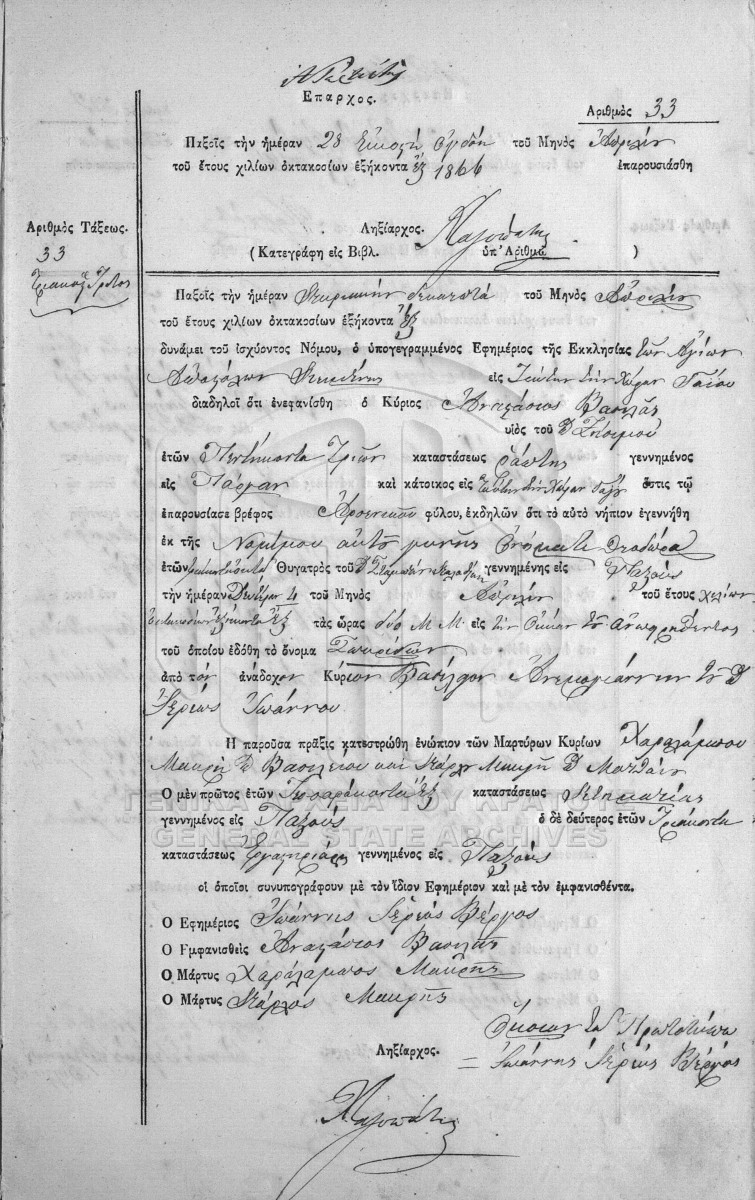 Επαρχος.
Αριθμὸς 33
Παξοῖς τὴν ἡμέραν 28 Εἰκοστὴ Ὀγδόη τοῦ Μηνὸς Ἀπριλίου
τοῦ ἔτους χιλίων ὀκτακοσίων ἐξήκοντα ἓξ 1866 ἐπαρουσιάσθη
Αριθμὸς Τάξεως.
33
Τριακοστὸς Τρίτος
Ληξίαρχος.
(Κατεγράφη εἰς Βιβλ. ὑπ' Ἀριθμὸ )
Παξοῖς τὴν ἡμέραν τοῦ Μηνὸς Ἀπριλίου
τοῦ ἔτους χιλίων ὀκτακοσίων ἐξήκοντα ἓξ
δυνάμει τοῦ ἰσχύοντος Νόμου, ὁ ὑπογεγραμμένος Ἐφημέριος τῆς Εκκλησίας τῶν Ἁγίων
Ἀποστόλων εἰς Ταύτην τὴν Χώραν Γαΐου
διαδηλοῖ ὅτι ἐνεφανίσθη ὁ Κύριος Ἀναστάσιος Βασιλᾶς
υἱὸς τοῦ
ἐτῶν Πεντήκοντα Τριῶν καταστάσεως Ῥάπτης γεννημένος
εἰς Πάργαν καὶ κάτοικος εἰς Ταύτην τὴν Χώραν ὅστις τῷ
ἐπαρουσίασε βρέφος Ἀρσενικοῦ φύλου, ἐκδηλῶν ὅτι τὸ αὐτὸ νήπιον ἐγεννήθη
ἐκ τῆς Νομίμου αὐτοῦ γυνῆς Ὀνόματι Θεοδώρα
ἐτῶν Θυγατρὸς τοῦ γεννημένης εἰς Παξοὺς
τὴν ἡμέραν Δευτέραν 4 τοῦ Μηνὸς Ἀπριλίου τοῦ ἔτους χιλίων
Ὀκτακοσίων Ἑξήκοντα Ἓξ τὰς ὥρας δύο Μ.Μ. εἰς τὴν Οἰκίαν τοῦ
τοῦ ὁποίου ἐδόθη τὸ ὄνομα Σπυρίδων
ἀπὸ τὸν ἀνάδοχον Κύριον Βασίλειον Ἀνεμογιάννην τοῦ
Ἱερέως Ἰωάννου
Ἡ παροῦσα πρᾶξις κατεστρώθη ἐνώπιον τῶν Μαρτύρων Κυρίων Χαραλάμπου
Μακρῆ Βασιλείου καὶ Μακρῆ Ματθαίου
Ὁ μὲν πρῶτος ἐτῶν Τεσσαράκοντα ἓξ καταστάσεως Κτηματίας
γεννημένος εἰς Παξοὺς ὁ δὲ δεύτερος ἐτῶν Τριάκοντα
καταστάσεως γεννημένος εἰς Παξοὺς
οἱ ὁποῖοι συνυπογράφουν μὲ τὸν ἴδιον Ἐφημέριον καὶ μὲ τὸν ἐμφανισθέντα.
Ὁ Ἐφημέριος Ἰωάννης Ἱερεὺς Βέργος
Ὁ Εμφανισθεὶς Ἀναστάσιος Βασιλᾶς
Ὁ Μάρτυς Χαράλαμπος Μακρῆς
Ὁ Μάρτυς Μακρῆς
Ὅμοιον τῷ Πρωτοτύπῳ
Ἰωάννης Ἱερεὺς Βέργος
Ληξίαρχος.
ΓΕΝΙΚΑ ΑΡΧΕΙΑ ΤΟΥ ΚΡΑΤΟΥΣ
GENERAL STATE ARCHIVES